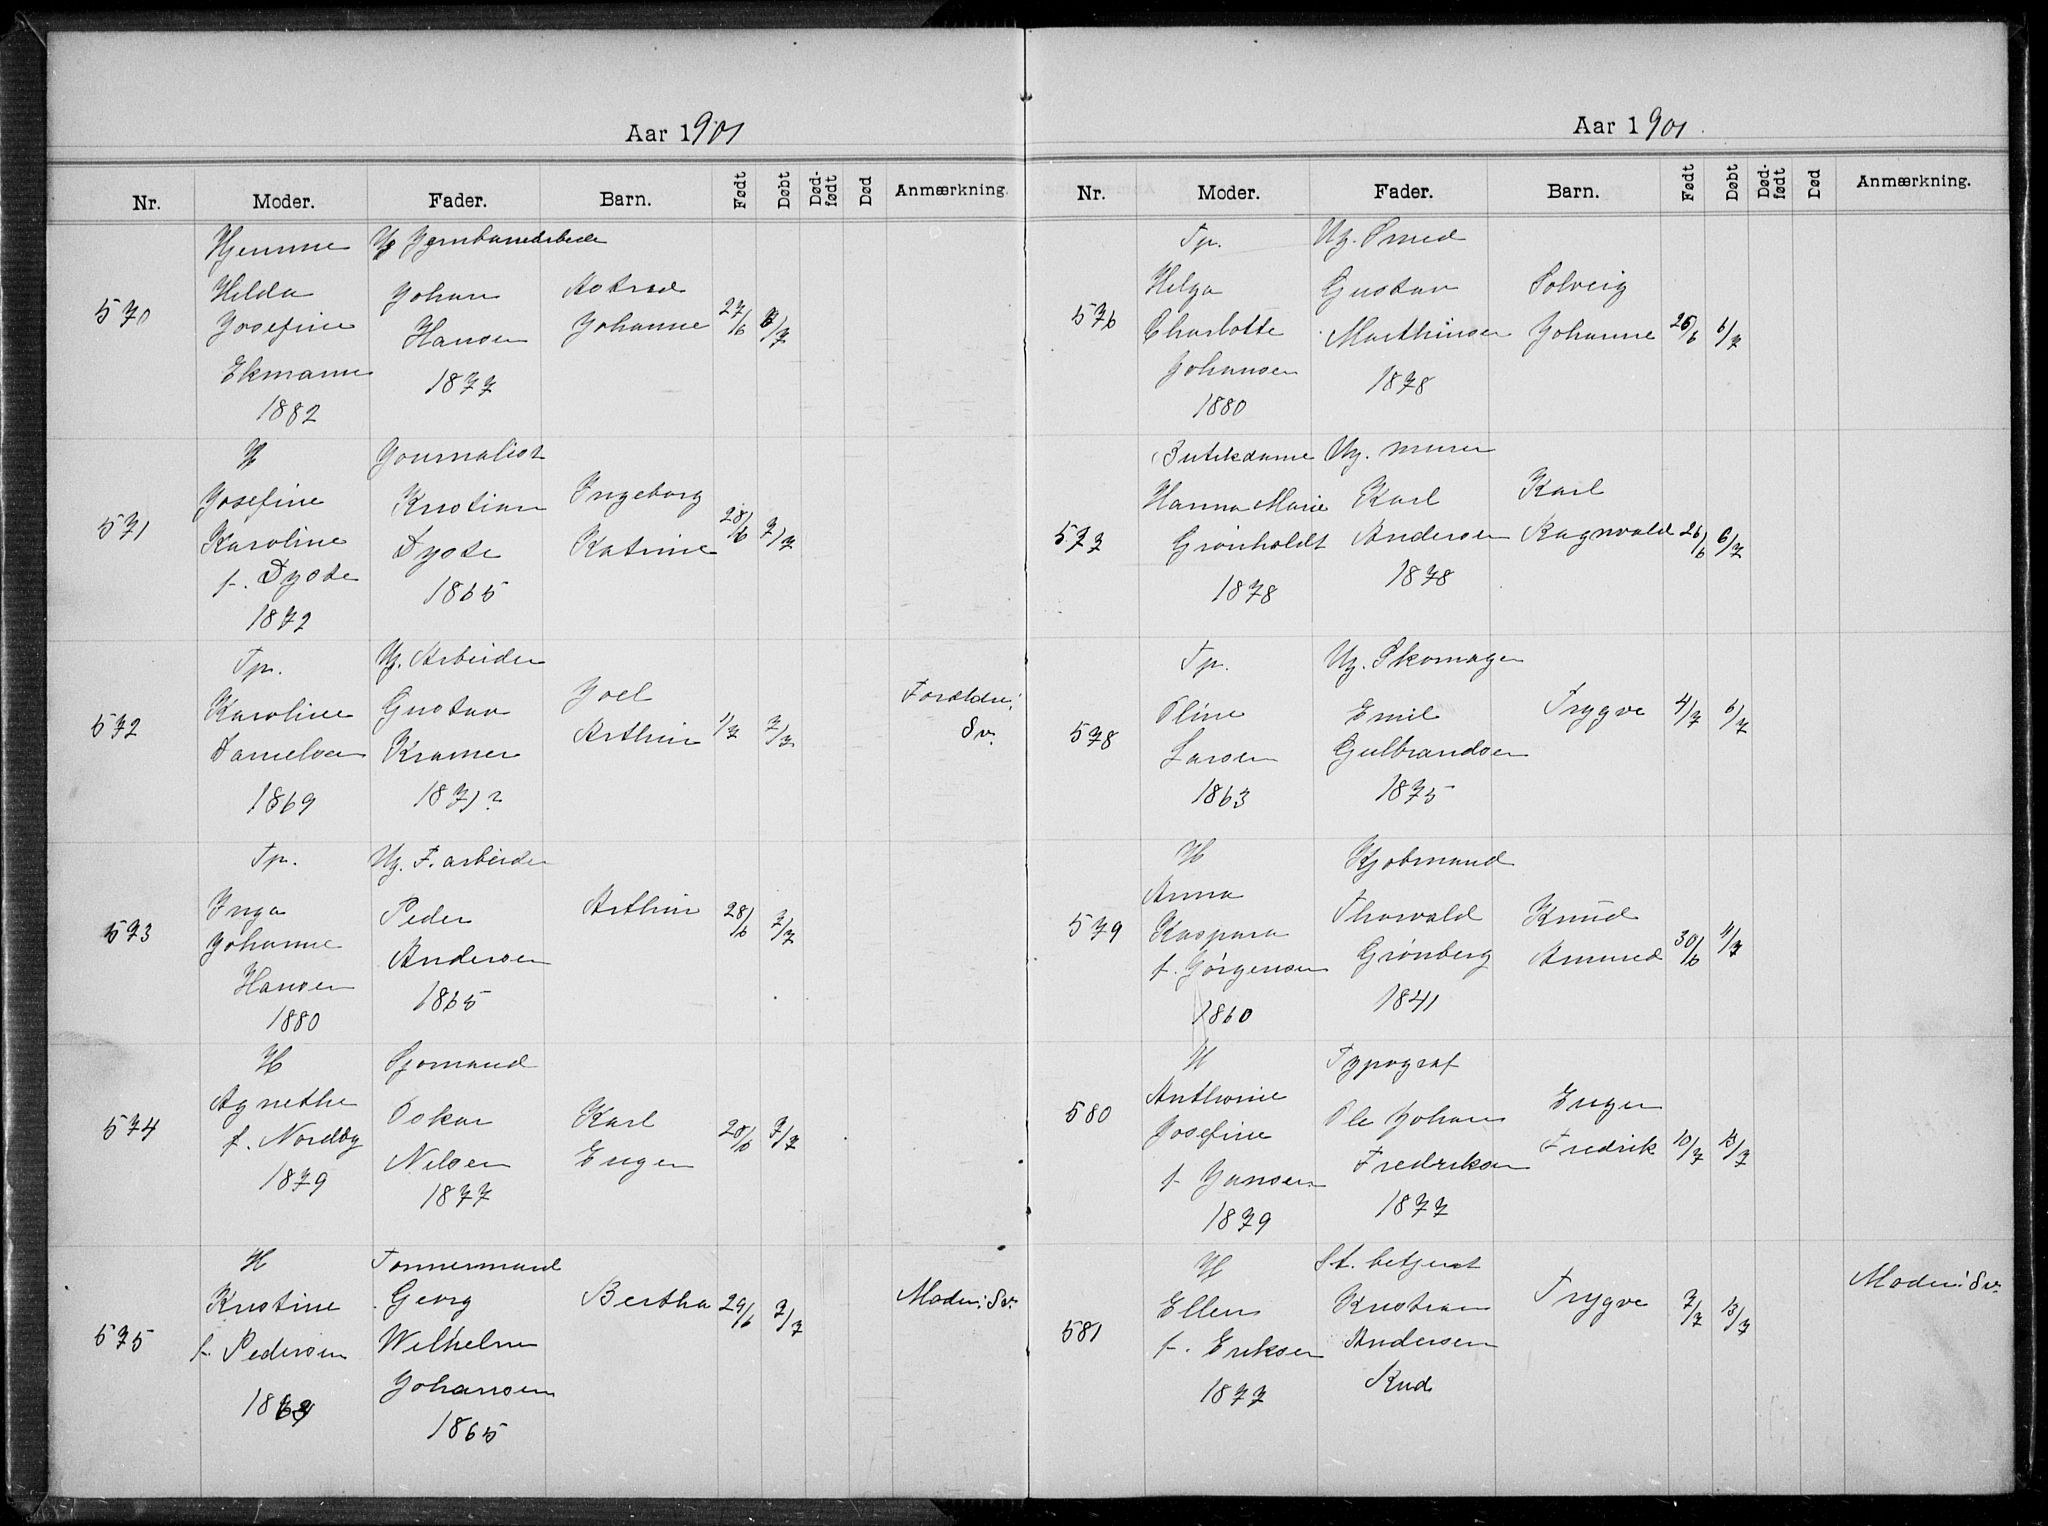 Aar 1901
Nr. Moder. Fader. Barn. Født Døbt Død-født Død Anmærkning.
Hjemme Ug Jernbanearbeide
570 Hilda Johan Astrid 27/6 /7
Josefine Hansen Johanne
Ekmann 1877
1882
H Journalist
571 Josefine Kristian Ingeborg 28/6 7/7
Karoline Dyste Katrine
f. Dyste 1865
1872
Tp. Ug. Arbeider
572 Karoline Gustav Joel 1/7 7/7 Forældre:
Danielsen Kramer Arthur Sv.
1869 1871?
Tp. Ug. F. arbeider
573 Inga Peder Arthur 28/6 7/7
Johanne Andersen
Hansen 1865
1880
H Sjømand
574 Agnethe Oskar Karl 28/6 7/7
f. Nordby Nilsen Eugen
1879 1877
H Tømmermand
575 Kristine Georg Bertha 29/6 7/7 Moder: Sv.
f. Pedersen Wilhelm
Johansen
1865
Aar 1901.
Nr. Moder. Fader. Barn. Født Døbt Død-født Død Anmærkning.
Tp. Ug. Smed
576 Helga Gustav Solveig 26/6 6/7
Charlotte Marthinsen Johanne
Johansen 1878
1880
Butikdame Ug. murer
577 Hanna Marie Karl Karl 26/6 6/7
Grønholdt Andersen Ragnvald
1878 1878
Tp. Ug. Skomager
578 Oline Emil Trygve 4/7 6/7
Larsen Gulbrandsen
1863 1875
H Kjøbmand
579 Anna Thorvald Knud 30/6 11/7
Kaspara Grønberg Amund
f. Jørgensen 1841
1860
H Typograf
580 Anthonie Ole Johan Eugen 10/7 13/7
Josefine Fredriksen Fredrik
f. Jansen 1877
1879
H St. betjent
581 Ellen Kristian Trygve 7/7 13/7 Moder: Sv.
f. Eriksen Andersen
1877 Rud